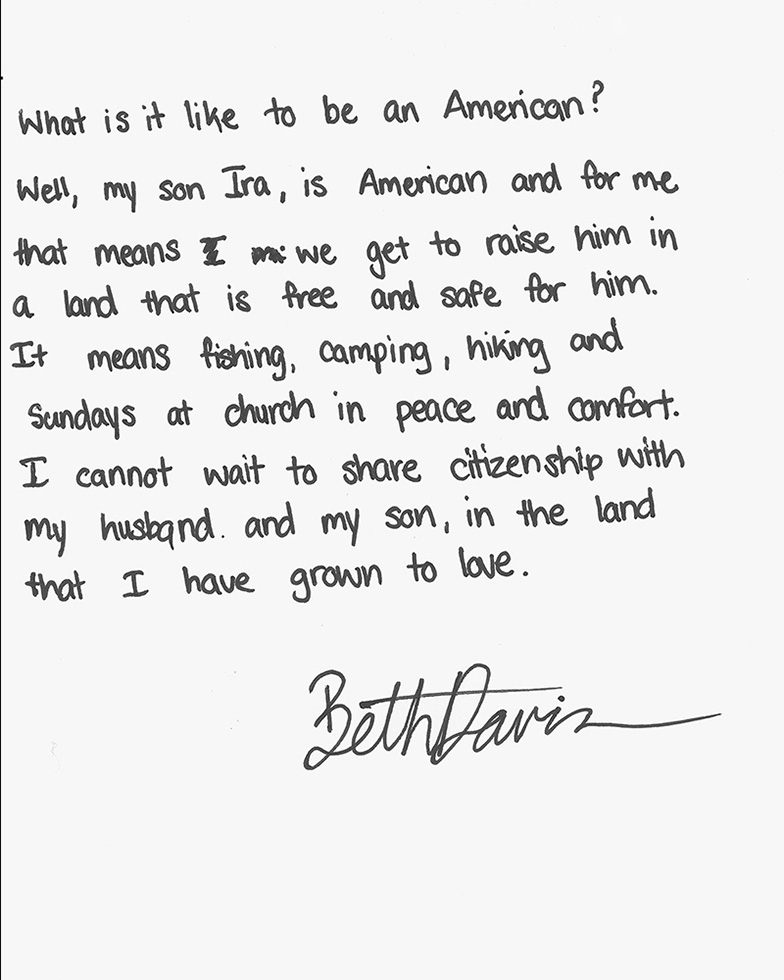 What is it like to be an American?
Well, my son Ira, is American and for me
that means we get to raise him in
a land that is free and safe for him.
It means fishing, camping, hiking and
Sundays at church in peace and comfort.
I cannot wait to share citizenship with
my husband. and my son, in the land
that I have grown to love.
Beth Davis